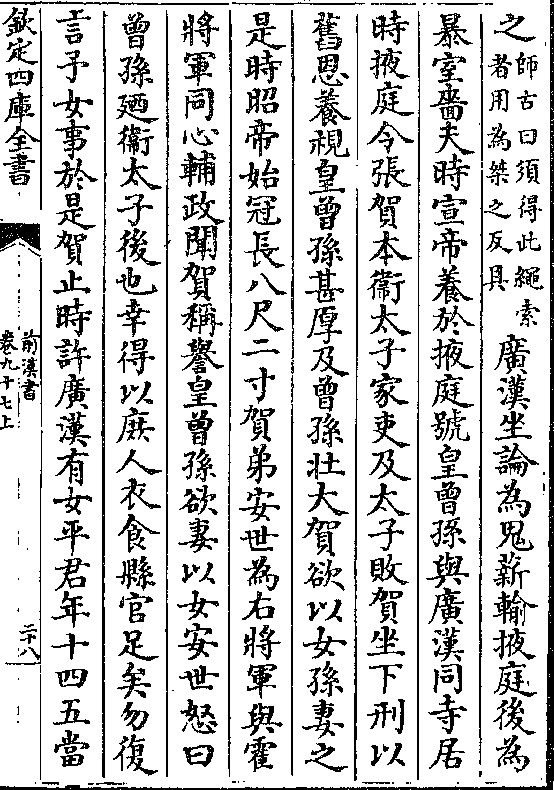 之師古曰須得此繩索
者用為桀之反具廣漢坐論為鬼薪輸掖庭後為
暴室嗇夫時宣帝養於掖庭號皇曾孫與廣漢同寺居
時掖庭令張賀本衞太子家吏及太子敗賀坐下刑以
舊恩養視皇曾孫甚厚及曾孫壯大賀欲以女孫妻之
是時昭帝始冠長八尺二寸賀弟安世為右將軍與霍
將軍同心輔政聞賀稱譽皇曾孫欲妻以女安世怒曰
曾孫廼衞太子後也幸得以庶人衣食縣官足矣勿復
言予女事於是賀止時許廣漢有女平君年十四五當
欽定四庫全書
前漢書
卷九十七上
二十八